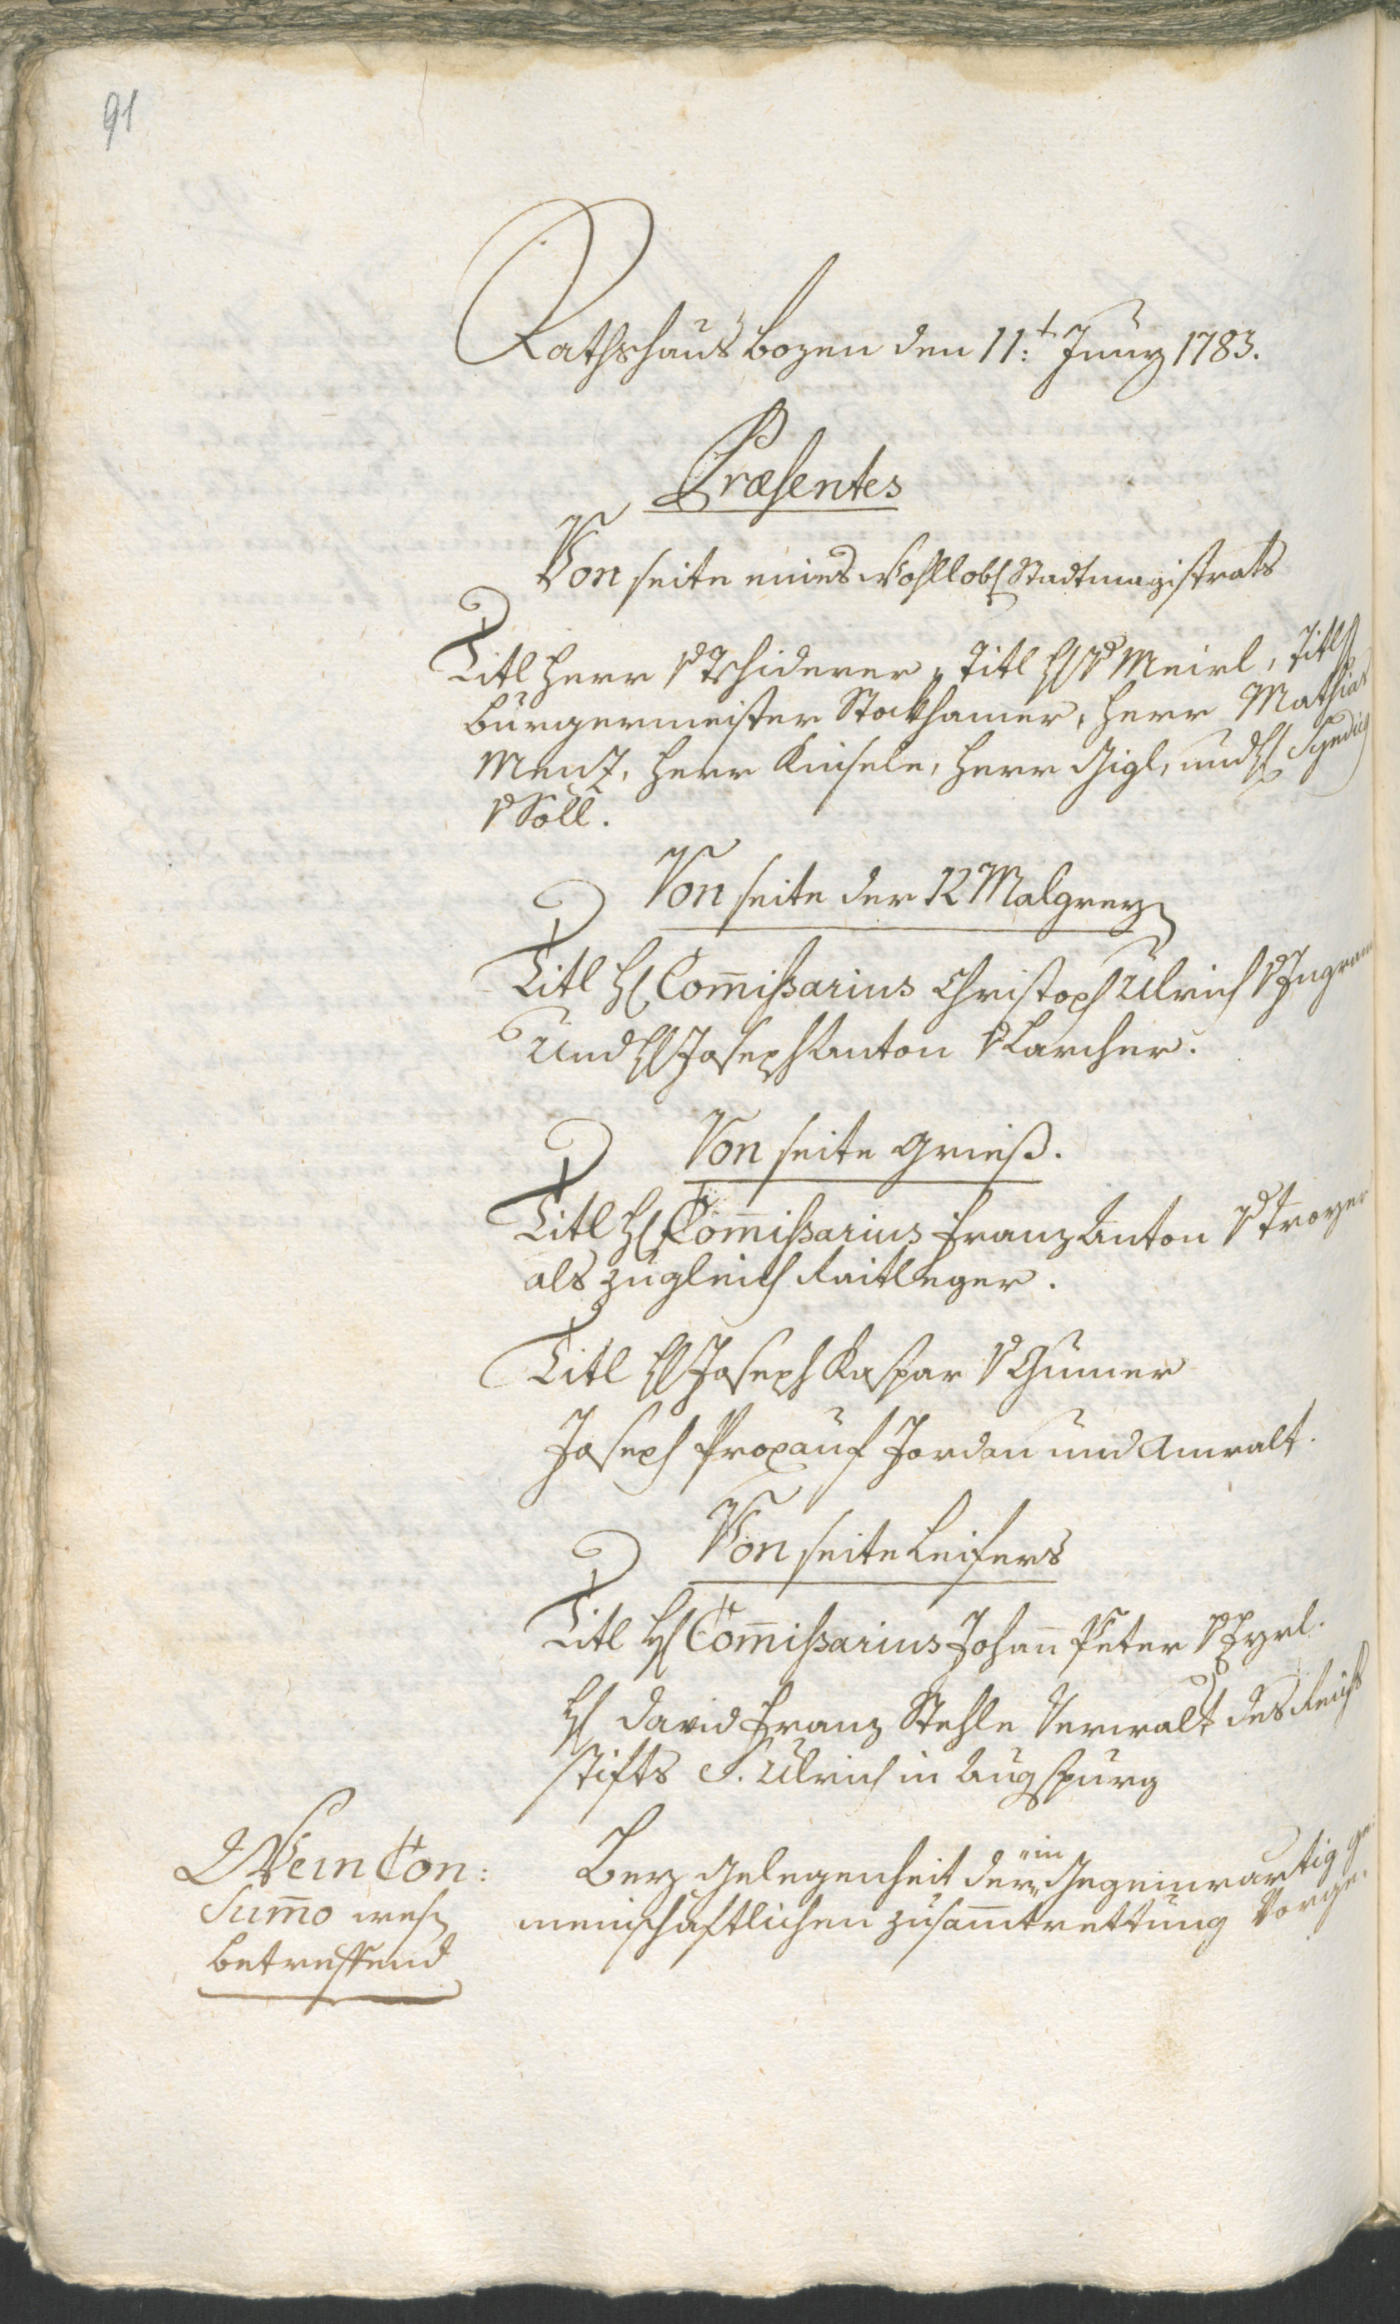 91
Rathshaus Bozen den 11:t Juny 1783.
Præsentes
Von seite eines Wohllobl Stadtmagistrats
Titl Herr v Tschiderer, Titl H v Meirl, Titl H
Bürgermeister Stockhamer, Herr Mathias
Menz, Herr Kinsele, Herr Gigl, und H Syndicg
v Söll.
Von seite der 12 Malgrey
Titl H Com̄issarius Christoph Ulrich v Ingram
Und H Joseph Anton v Larcher.
Von seite Grieß.
Titl H Com̄issarius Franz Anton v Troyer
als zugleich Raitleger.
Titl H Joseph Kaspar v Gumer
Joseph Propauf Jordan und Anwalt.
Von seite Leifers
Titl H Com̄issarius Johan̄ Peter v Eyrl.
H David Franz Stehle Verwalt des Reichs
stifts S. Ulrich in Augspurg
Wein Con:
Sum̄o wesen
betreffend
Bey Gelegenheit der ein Gegenwärtig ge
meinschaftlichen zusam̄trettung Vorge